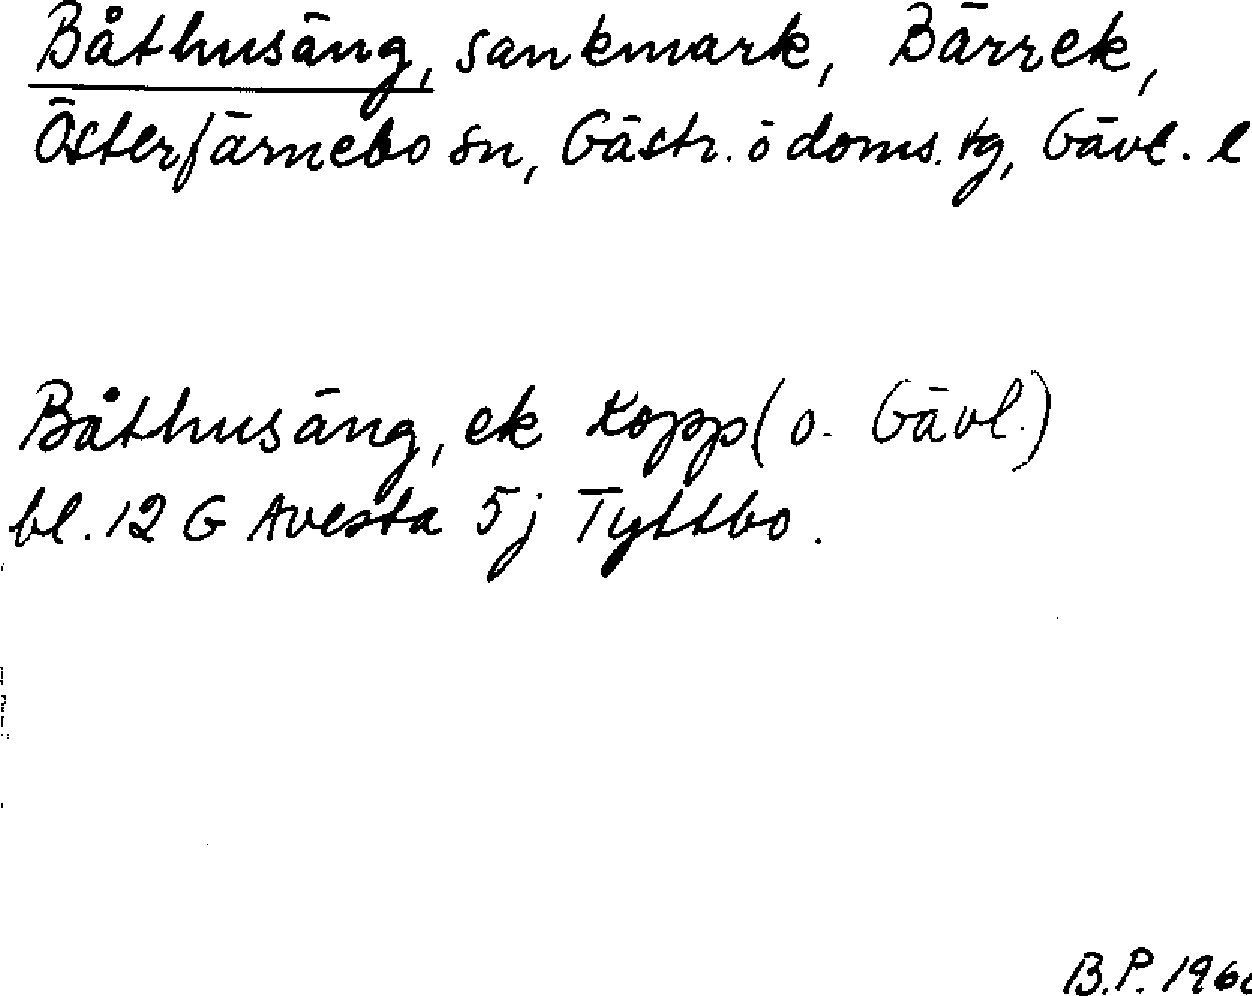 Båthusäng, sankmark, Bärrek,
Österfärnebo sn, Gästr. ö doms. tg, Gävl. l
Båthusäng, ek Kopp (o. Gävl.)
bl. 12 G Avesta 5j Tyttbo.
B.P. 196